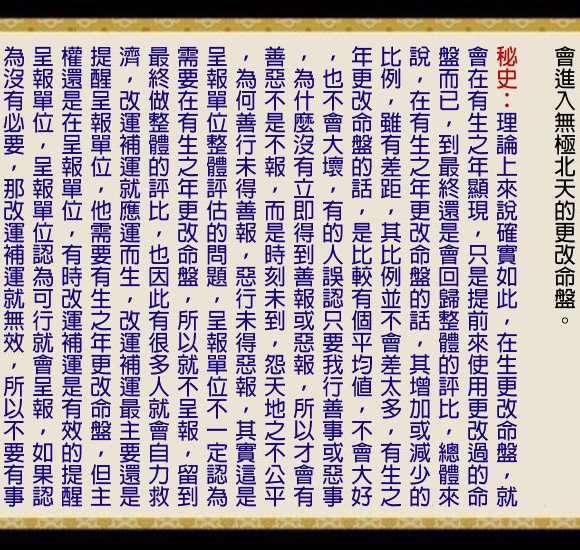 會進入無極北天的更改命盤。
秘史：理論上來說確實如此，在生更改命盤，就
會在有生之年顯現，只是提前來使用更改過的命
盤而已，到最終還是會回歸整體的評比，總體來
說，在有生之年更改命盤的話，其增加或減少的
比例，雖有差距，其比例並不會差太多，有生之
年更改命盤的話，是比較有個平均值，不會大好
，也不會大壞，有的人誤認只要我行善事或惡事
，為什麼沒有立即得到善報或惡報，所以才會有
善惡不是不報，而是時刻未到，怨天地之不公平
，為何善行未得善報，惡行未得惡報，其實這是
呈報單位整體評估的問題，呈報單位不一定認為
需要在有生之年更改命盤，所以就不呈報，留到
最終做整體的評比，也因此有很多人就會自力救
濟，改運補運就應運而生，改運補運最主要還是
提醒呈報單位，他需要有生之年更改命盤，但主
權還是在呈報單位，有時改運補運是有效的提醒
呈報單位，呈報單位認為可行就會呈報，如果認
為沒有必要，那改運補運就無效，所以不要有事